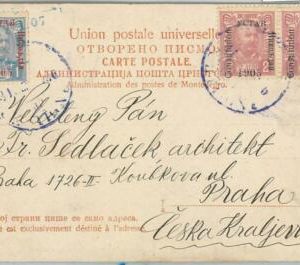 Union postale universelle
ОТВОРЕНО ПИСМО
CARTE POSTALE.
АДМИНИСТРАЦИЈА ПОШТА ЦРН
Administration des postes de Monténégro.
УСТАВ
Constitution
1905
Veleteng Pán
Fr. Sedláček architekt
Praha 1726-II Koubkova ul.
Praha
Česká Kraljev
ој страни пише се само адреса.
est exclusivement destiné à l'adresse